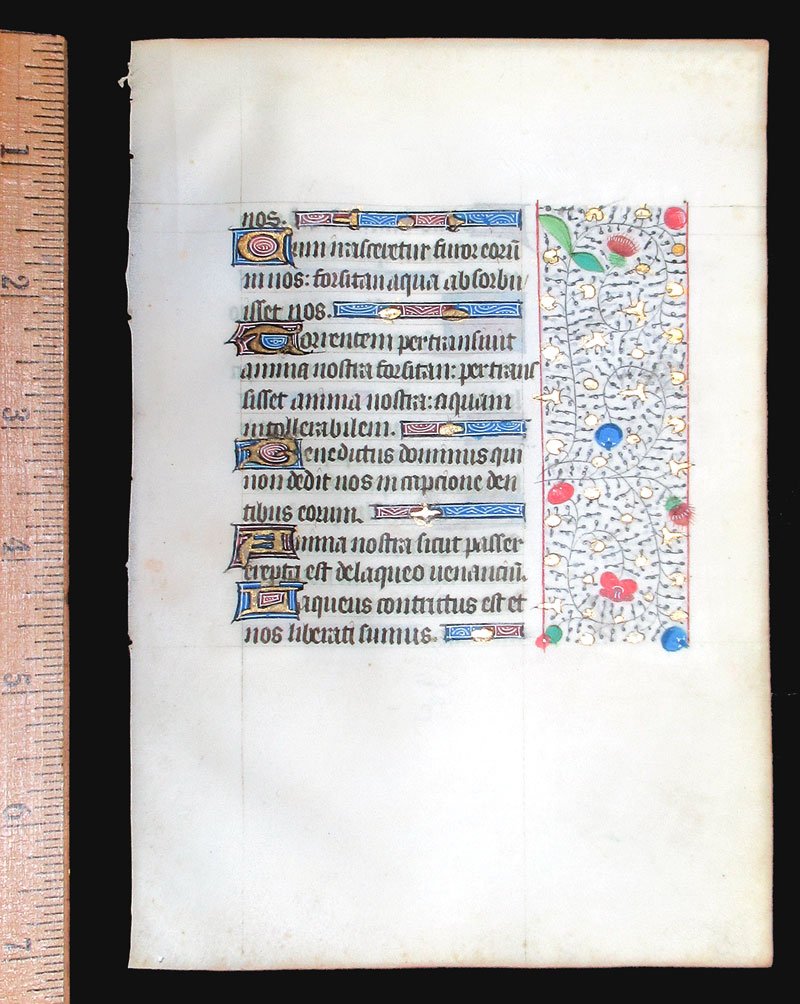 nos.
Cum irasceretur furor eorū
in nos: forsitan aqua absorbu
isset nos.
Torrentem pertransiuit
anima nostra forsitan: pertrans
sisset anima nostra: aquam
intollerabilem.
Benedictus dominus qui
non dedit nos in capcione den
tibus eorum.
Anima nostra sicut passer
erepta est de laqueo uenanciū.
Laqueus contritus est et
nos liberati sumus.
1
2
3
4
5
6
7